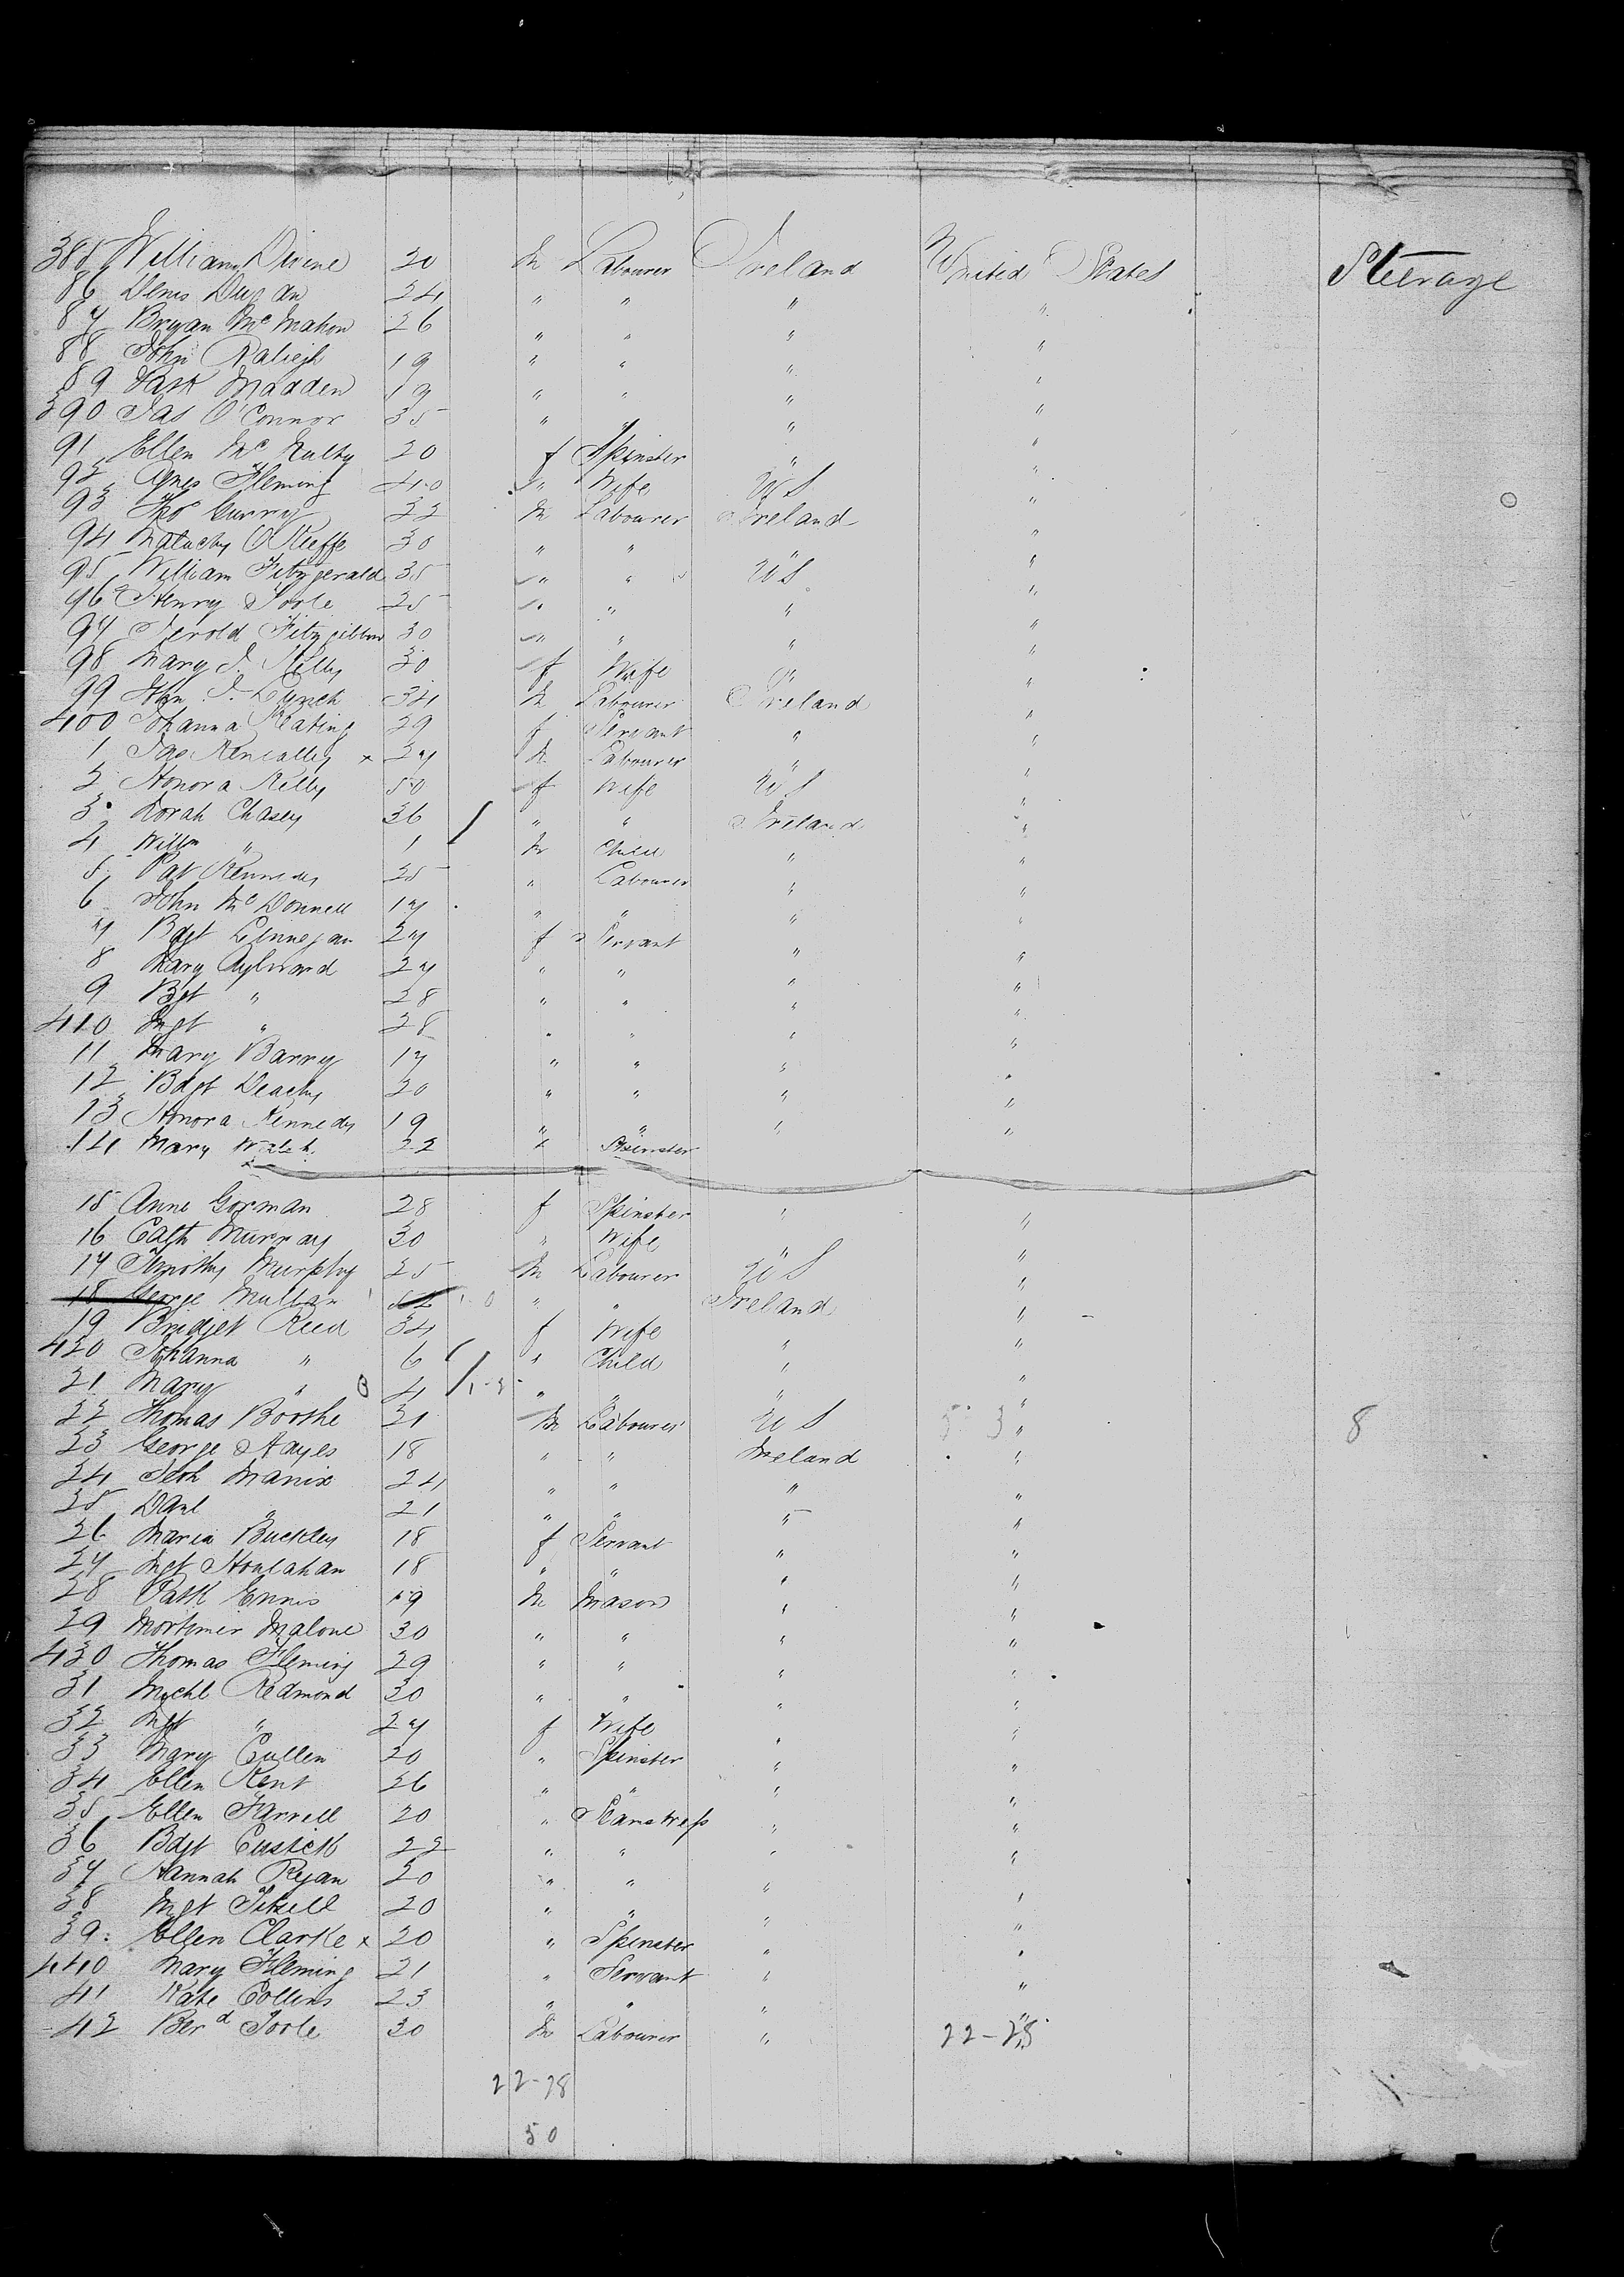 385 William Divine 20 M Labourer Ireland United States Steerage
86 Denis Dugan 24 " " " "
87 Bryan McMahon 26 " " " "
88 John Raliegh 19 " " " "
89 Madden 19 " " " "
390 Jas O'Connor 35 " " " "
91 Ellen McNulty 20 f Spinster " "
92 Agnes Fleming 40 " Wife U S "
93 Thos Gurry 22 M Labourer Ireland "
94 Malachy O'Keeffe 30 " " " "
95 William Fitzgerald 35 " " U S "
96 Henry Toole 25 " " " "
97 Jerold Fitzgibbon 30 " " " "
98 Mary J. Kelly 30 f Wife " "
99 Jhn J. Lynch 34 M Labourer Ireland "
400 Johanna Keating 29 f Servant " "
1 Jas Keneally x 27 M Labourer " "
2 Honora Kelly 50 f Wife U S "
3 Norah Chasey 36 " " Ireland "
4 Willm " 1 M Child " "
5 Pat Kennedy 25 " Labourer " "
6 John McDonnell 17 " " " "
7 Bdgt Linnegan 27 f Servant " "
8 Mary Aylward 27 " " " "
9 Bgt " 28 " " " "
410 Mgt " 28 " " " "
11 Mary Barry 17 " " " "
12 Bdgt Deachy 20 " " " "
13 Honora Kennedy 19 " " " "
14 Mary Walsh 22 " Spinster
15 Anne Gorman 28 f Spinster " "
16 Cath Murray 30 " Wife " "
17 Timothy Murphy 25 M Labourer U S "
18 George Mullan 52 " " Ireland "
19 Bridget Reed 34 f Wife " "
420 Johanna " 6 " Child " "
21 Mary " 4 " " " "
22 Thomas Boothe 21 M Labourer U S " 8
23 George Hayes 18 " " Ireland "
24 Manix 24 " " " "
25 Danl " 21 " " " "
26 Maria Buckley 18 f Servant " "
27 Mgt Houlahan 18 " " " "
28 Patk Ennis 19 M Mason " "
29 Mortimer Malone 30 " " " "
430 Thomas Fleming 29 " " " "
31 Michl Redmond 30 " " " "
32 Mgt " 27 f Wife " "
33 Mary Cullen 20 " Spinster " "
34 Ellen Kent 26 " " " "
35 Ellen Farrell 20 " Seamstress " "
36 Bdgt Cusick 22 " " " "
37 Hannah Ryan 20 " " " "
38 Mgt 20 " " " "
39 Ellen Clarke x 20 " Spinster " "
440 Mary Fleming 21 " Servant " "
41 Kate Collins 23 " " " "
42 Berd Toole 30 M Labourer " "
22-28
22-28
50